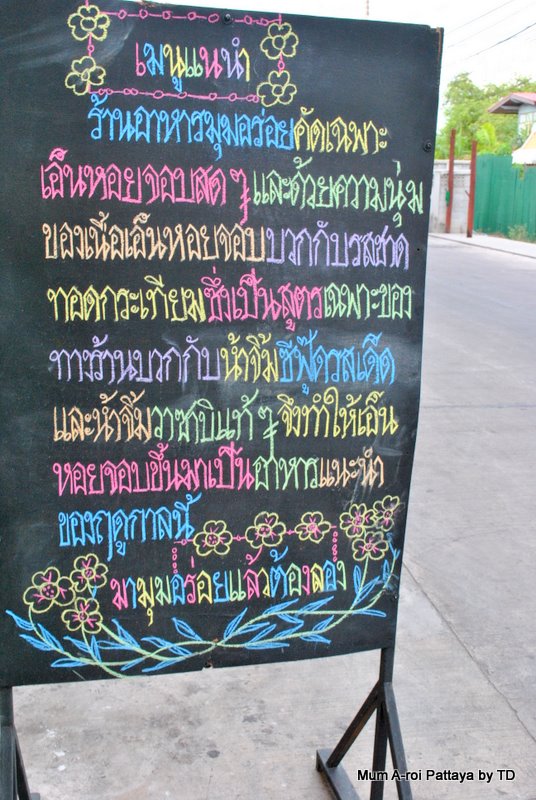 เมนูแนะนำ
ร้านอาหารมุมอร่อยคัดเฉพาะ
เอ็นหอยจอบสด ๆ และด้วยความนุ่ม
ของเนื้อเอ็นหอยจอบบวกกับรสชาด
ทอดกระเทียมซึ่งเป็นสูตรเฉพาะของ
ทางร้านบวกกับน้ำจิ้มซีฟู๊ดรสเด็ด
และน้ำจิ้มวาซาบิแท้ ๆ จึงทำให้เอ็น
หอยจอบขึ้นมาเป็นอาหารแนะนำ
ของฤดูกาลนี้
มามุมอร่อยแล้วต้องลอง
Mum A-roi Pattaya by TD